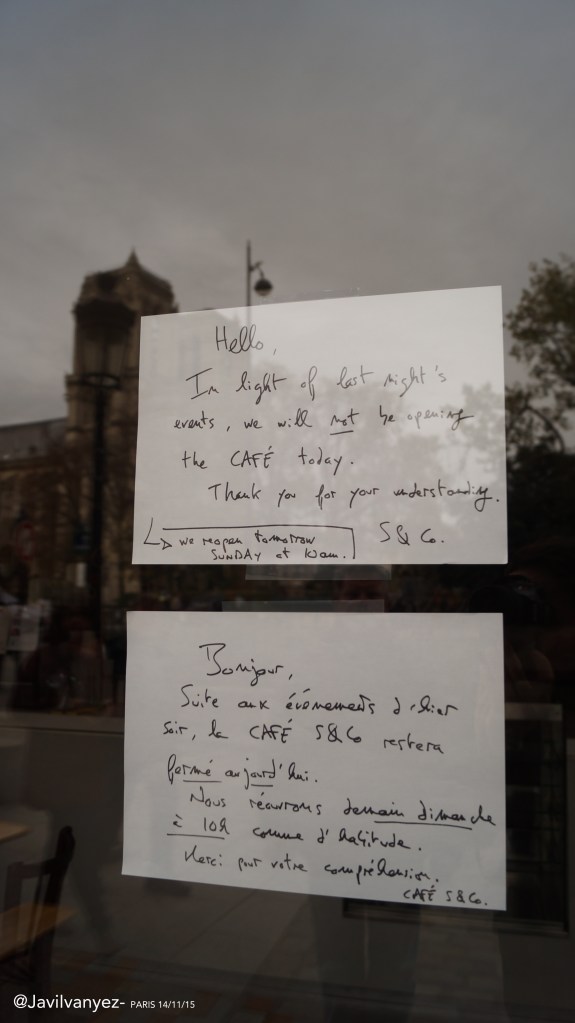 Hello,
In light of last night's
events, we will not be opening
the CAFÉ today.
Thank you for your understanding.
S&Co.
we reopen tomorrow
SUNDAY at 10am.
Bonjour,
Suite aux événements d'hier
soir, le CAFÉ S&Co restera
fermé aujourd'hui.
Nous réouvrons demain dimanche
à 10h comme d'habitude.
Merci pour votre compréhension.
CAFÉ S&Co.
@Javilvanyez- PARIS 14/11/15